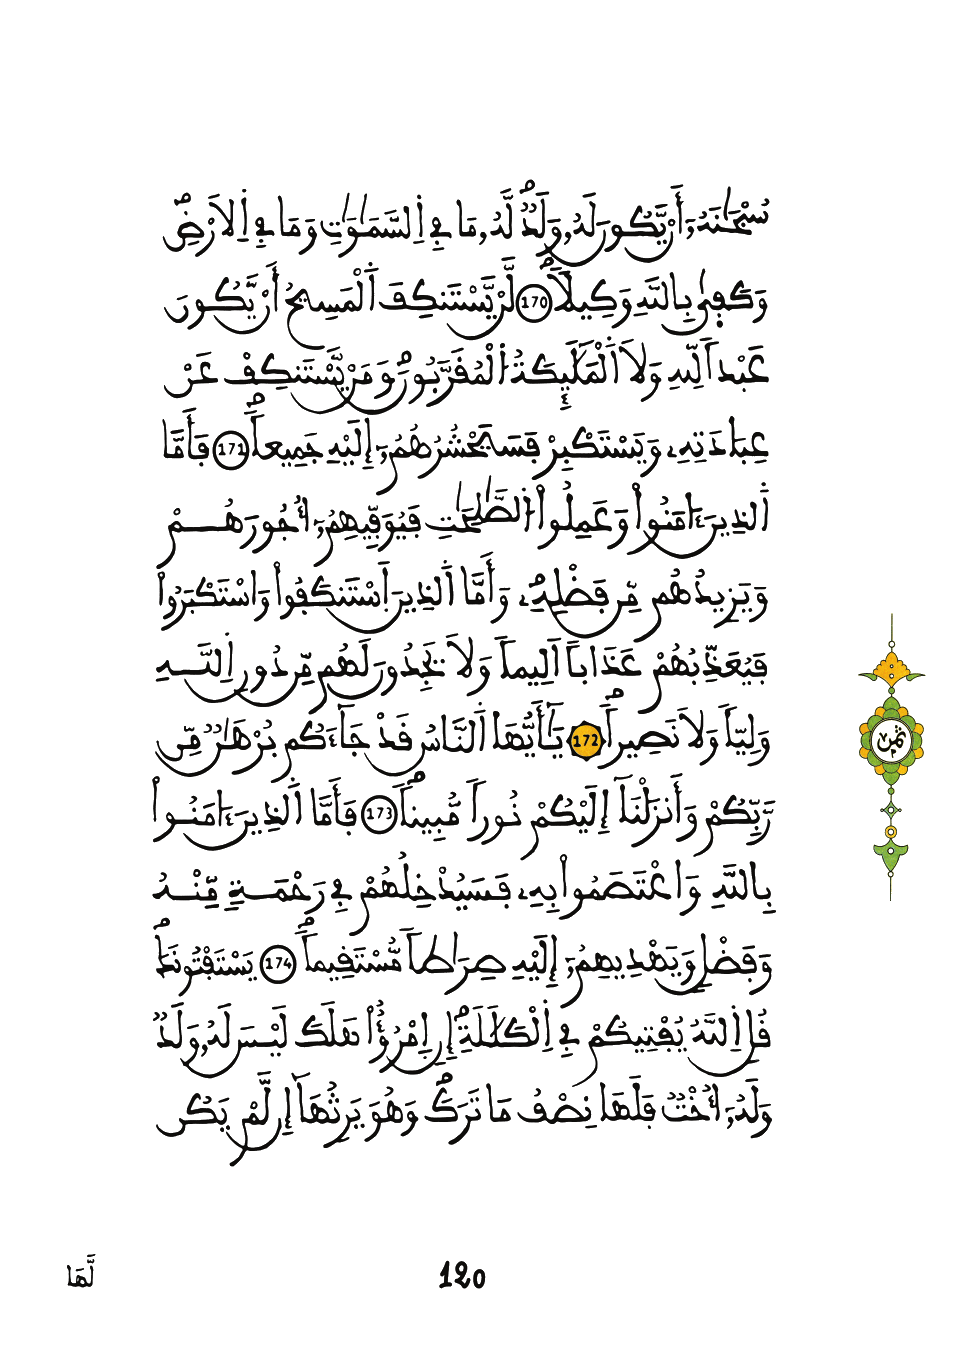 سُبْحَٰنَهُۥٓ أَنْ يَّكُونَ لَهُۥ وَلَدٞۖ لَّهُۥ مَا فِے اِ۬لسَّمَٰوَٰتِ وَمَا فِے اِ۬لَارْضِۖ
وَكَفَىٰ بِاللَّهِ وَكِيلاٗۖ 170 لَّنْ يَّسْتَنكِفَ اَ۬لْمَسِيحُ أَنْ يَّكُونَ
عَبْداٗ لِّلهِ وَلَا اَ۬لْمَلَٰٓئِكَةُ اُ۬لْمُقَرَّبُونَۖ وَمَنْ يَّسْتَنكِفْ عَنْ
عِبَادَتِهِۦ وَيَسْتَكْبِرْ فَسَيَحْشُرُهُمُۥٓ إِلَيْهِ جَمِيعاٗۖ 171 فَأَمَّا
اَ۬لذِينَ ءَامَنُواْ وَعَمِلُواْ اُ۬لصَّٰلِحَٰتِ فَيُوَفِّيهِمُۥٓ أُجُورَهُمْ
وَيَزِيدُهُم مِّن فَضْلِهِۦۖ وَأَمَّا اَ۬لذِينَ اَ۪سْتَنكَفُواْ وَاسْتَكْبَرُواْ
فَيُعَذِّبُهُمْ عَذَاباً اَلِيماٗ وَلَا يَجِدُونَ لَهُم مِّن دُونِ اِ۬للَّهِ
وَلِيّاٗ وَلَا نَصِيراٗۖ 172 يَٰٓأَيُّهَا اَ۬لنَّاسُ قَدْ جَآءَكُم بُرْهَٰنٞ مِّن
رَّبِّكُمْ وَأَنزَلْنَآ إِلَيْكُمْ نُوراٗ مُّبِيناٗۖ 173 فَأَمَّا اَ۬لذِينَ ءَامَنُواْ
بِاللَّهِ وَاعْتَصَمُواْ بِهِۦ فَسَيُدْخِلُهُمْ فِے رَحْمَةٖ مِّنْهُ
وَفَضْلٖ وَيَهْدِيهِمُۥٓ إِلَيْهِ صِرَٰطاٗ مُّسْتَقِيماٗۖ 174 يَسْتَفْتُونَكَۖ
قُلِ اِ۬للَّهُ يُفْتِيكُمْ فِے اِ۬لْكَلَٰلَةِۖ إِنِ اِ۪مْرُؤٌاْ هَلَكَ لَيْسَ لَهُۥ وَلَدٞ
وَلَهُۥٓ أُخْتٞ فَلَهَا نِصْفُ مَا تَرَكَۖ وَهُوَ يَرِثُهَآ إِن لَّمْ يَكُن
ثمن
لَّهَا
120